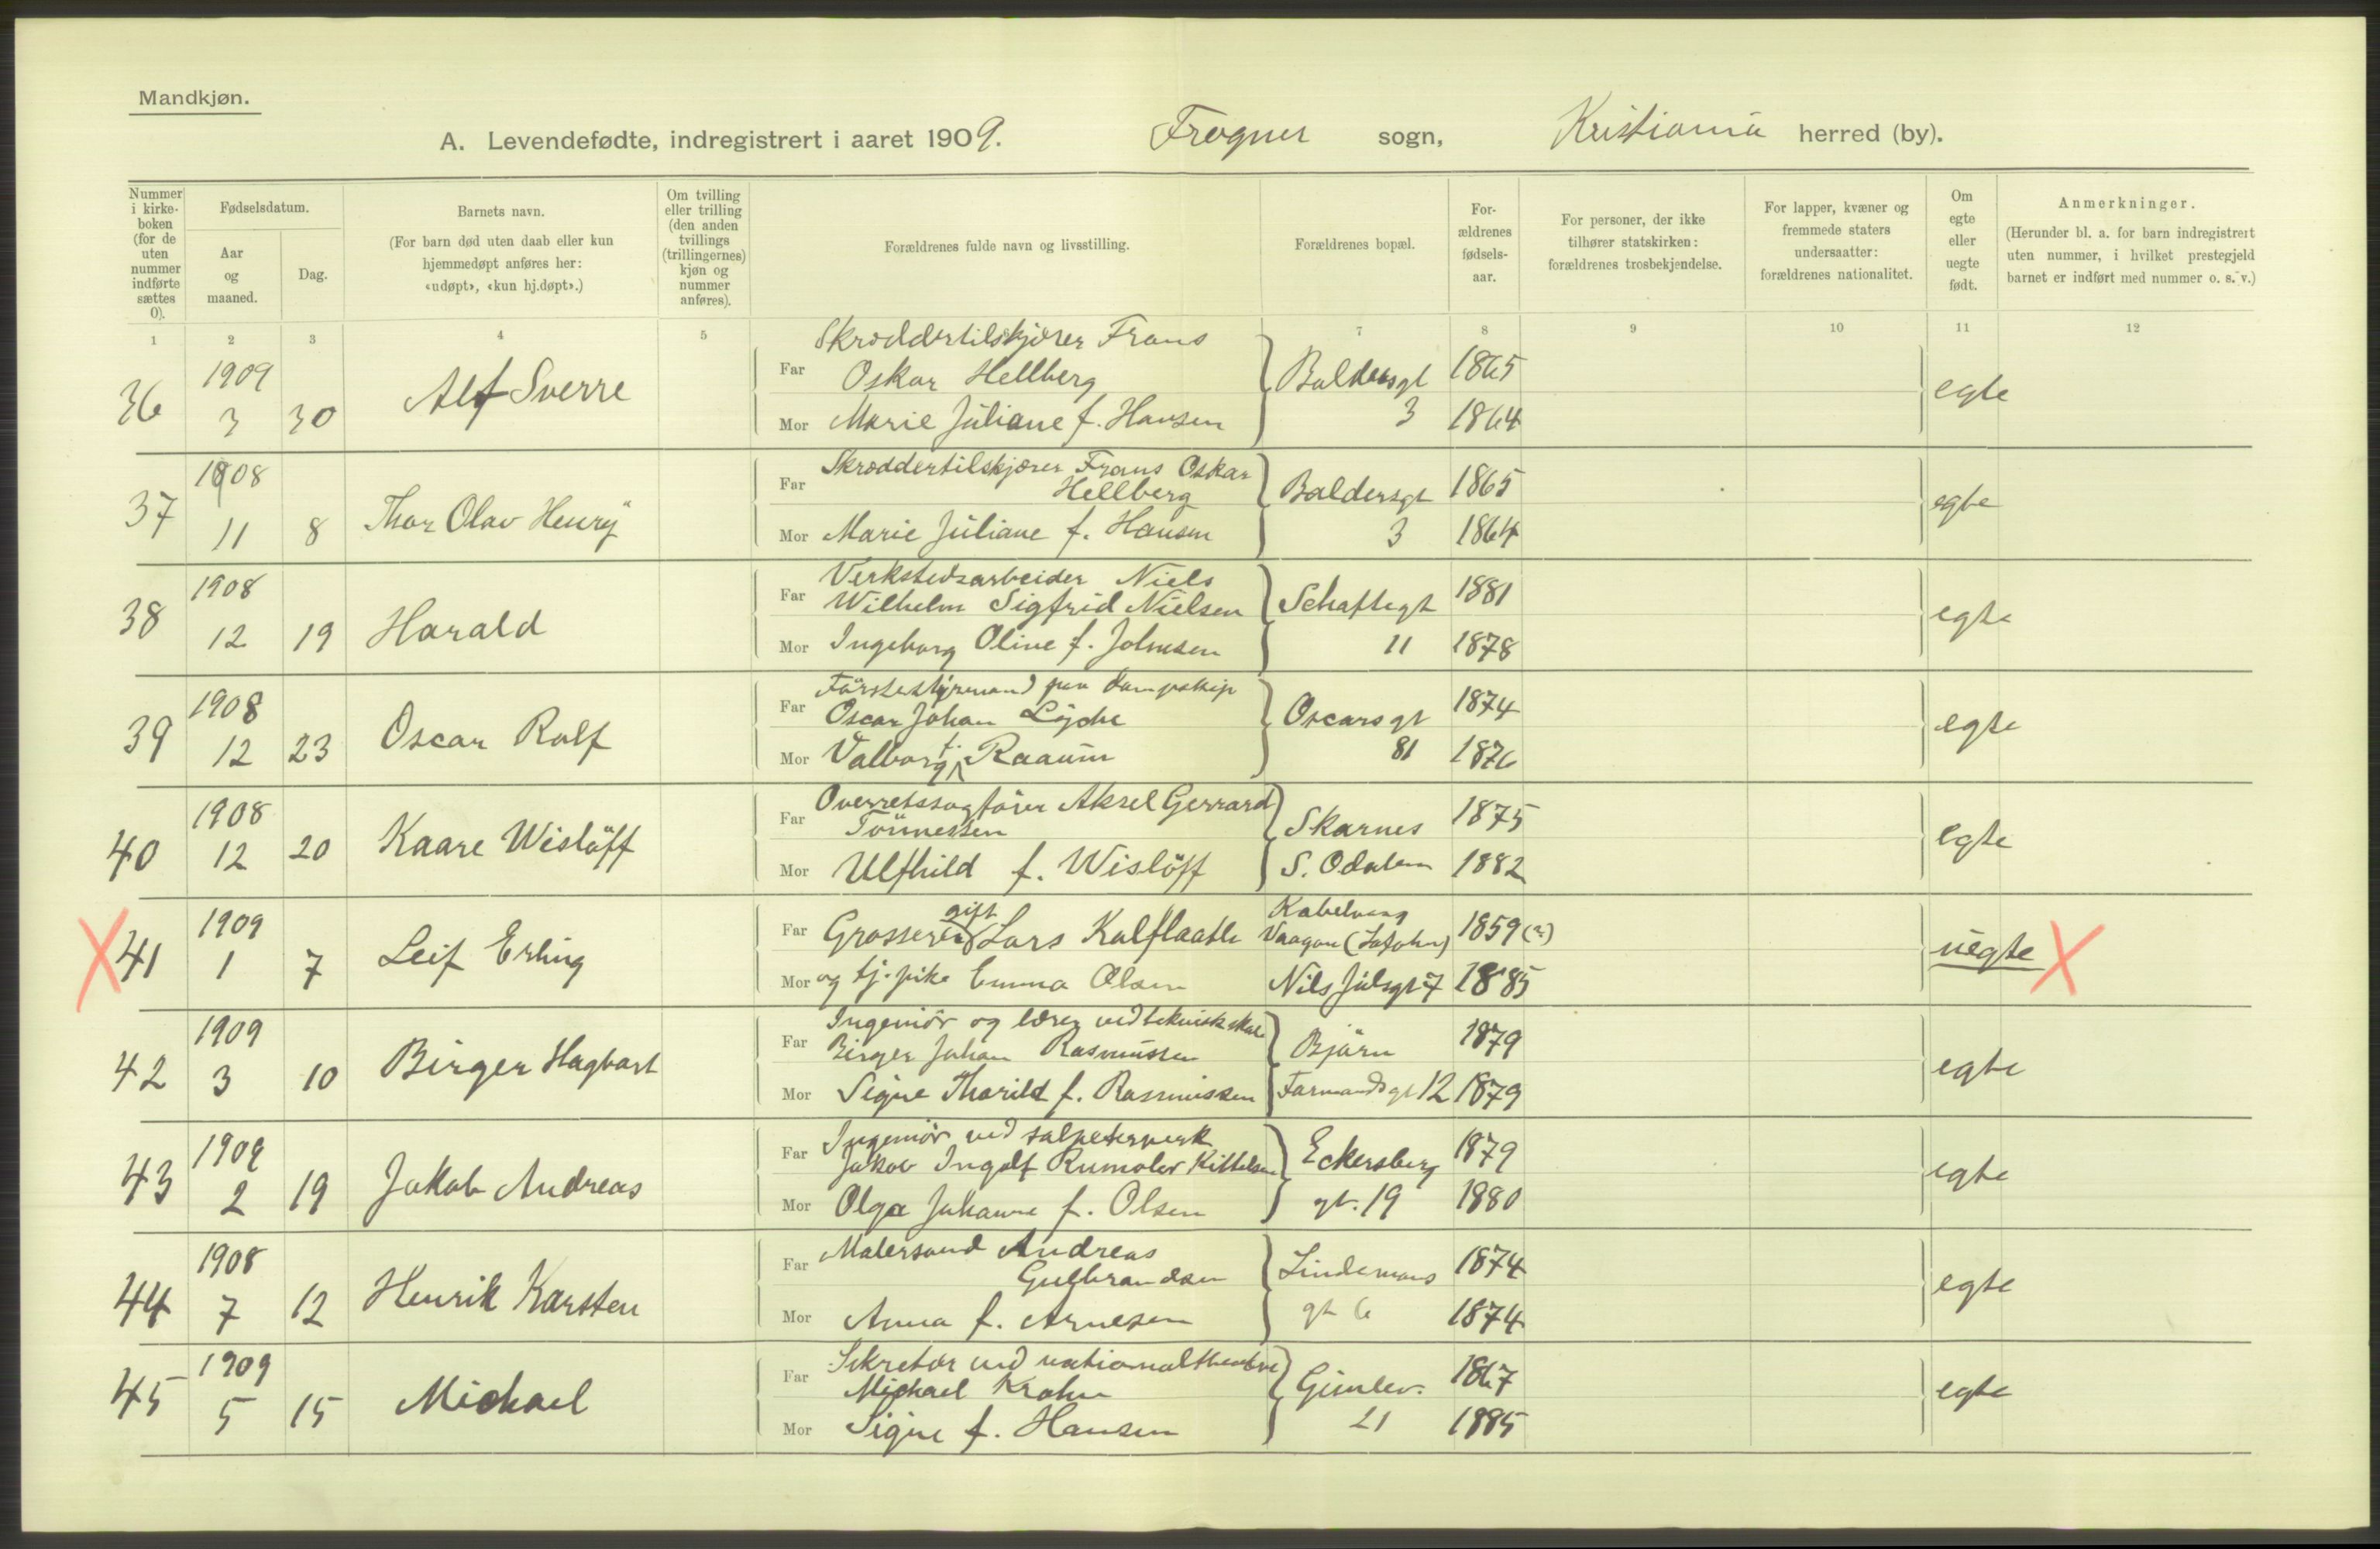 Mandkjøn.
A. Levendefødte, indregistrert i aaret 1909. Frogner sogn, Kristiania herred (by).
Nummer i kirkeboken (for de uten nummer indførte sættes 0).
Fødselsdatum.
Aar og maaned.
Dag.
Barnets navn.
(For barn død uten daab eller kun hjemmedøpt anføres her: «udøpt», «kun hj.døpt».)
Om tvilling eller trilling (den anden tvillings (trillingernes) kjøn og nummer anføres).
Forældrenes fulde navn og livsstilling.
Forældrenes bopæl.
Forældrenes fødselsaar.
For personer, der ikke tilhører statskirken: forældrenes trosbekjendelse.
For lapper, kvæner og fremmede staters undersaatter: forældrenes nationalitet.
Om egte eller uegte født.
Anmerkninger.
(Herunder bl. a. for barn indregistrert uten nummer, i hvilket prestegjeld barnet er indført med nummer o. s. v.)
1 2 3 4 5 7 8 9 10 11 12
36 1909 3 30 Alf Sverre
Far Skræddertilskjærer Frans
Oskar Hellberg Baldersgt 1865 egte
Mor Marie Juliane f. Hansen 3 1864
37 1908 11 8 Thor Olav Henry
Far Skræddertilskjærer Frans Oskar
Hellberg Baldersgt 1865 egte
Mor Marie Juliane f. Hansen 3 1864
38 1908 12 19 Harald
Far Verkstedsarbeider Niels
Wilhelm Sigfrid Nielsen Schaftegt 1881 egte
Mor Ingeborg Oline f. Johnsen 11 1878
39 1908 12 23 Oscar Rolf
Far Førstestyrmand paa dampskip
Oscar Johan Lyche Oscarsgt 1874 egte
Mor Valborg f. Raaum 81 1876
40 1908 12 20 Kaare Wisløff
Far Overretssagfører Aksel Gerrard
Tønnessen Skarnes 1875 egte
Mor Ulfhild f. Wisløff S. Odalen 1882
X 41 1909 1 7 Leif Erling
Far Grosserer gift Lars Kalflaatle Kabelvaag
Vaagan (Lofoten) 1859 (?) uegte X
Mor og tj. pike Emma Olsen Nils Juls gt 7 1885
42 1909 3 10 Birger Hagbart
Far Ingeniør og lærer ved teknisk skole
Birger Johan Rasmussen Bjørn 1879 egte
Mor Signe Thorild f. Rasmussen Farmandsgt 12 1879
43 1909 2 19 Jakob Andreas
Far Ingeniør ved salpeterverk
Jakob Ingolf Rumolor Kittelsen Eckersberg 1879 egte
Mor Olga Johanne f. Olsen gt. 19 1880
44 1908 7 12 Henrik Karsten
Far Malersvend Andreas
Gulbrandsen Lindemans 1874 egte
Mor Anna f. Arnesen gt 6 1874
45 1909 5 15 Michael
Far Sekretær ved nationaltheatre
Michael Krohn Gimlev. 1867 egte
Mor Signe f. Hansen 21 1885